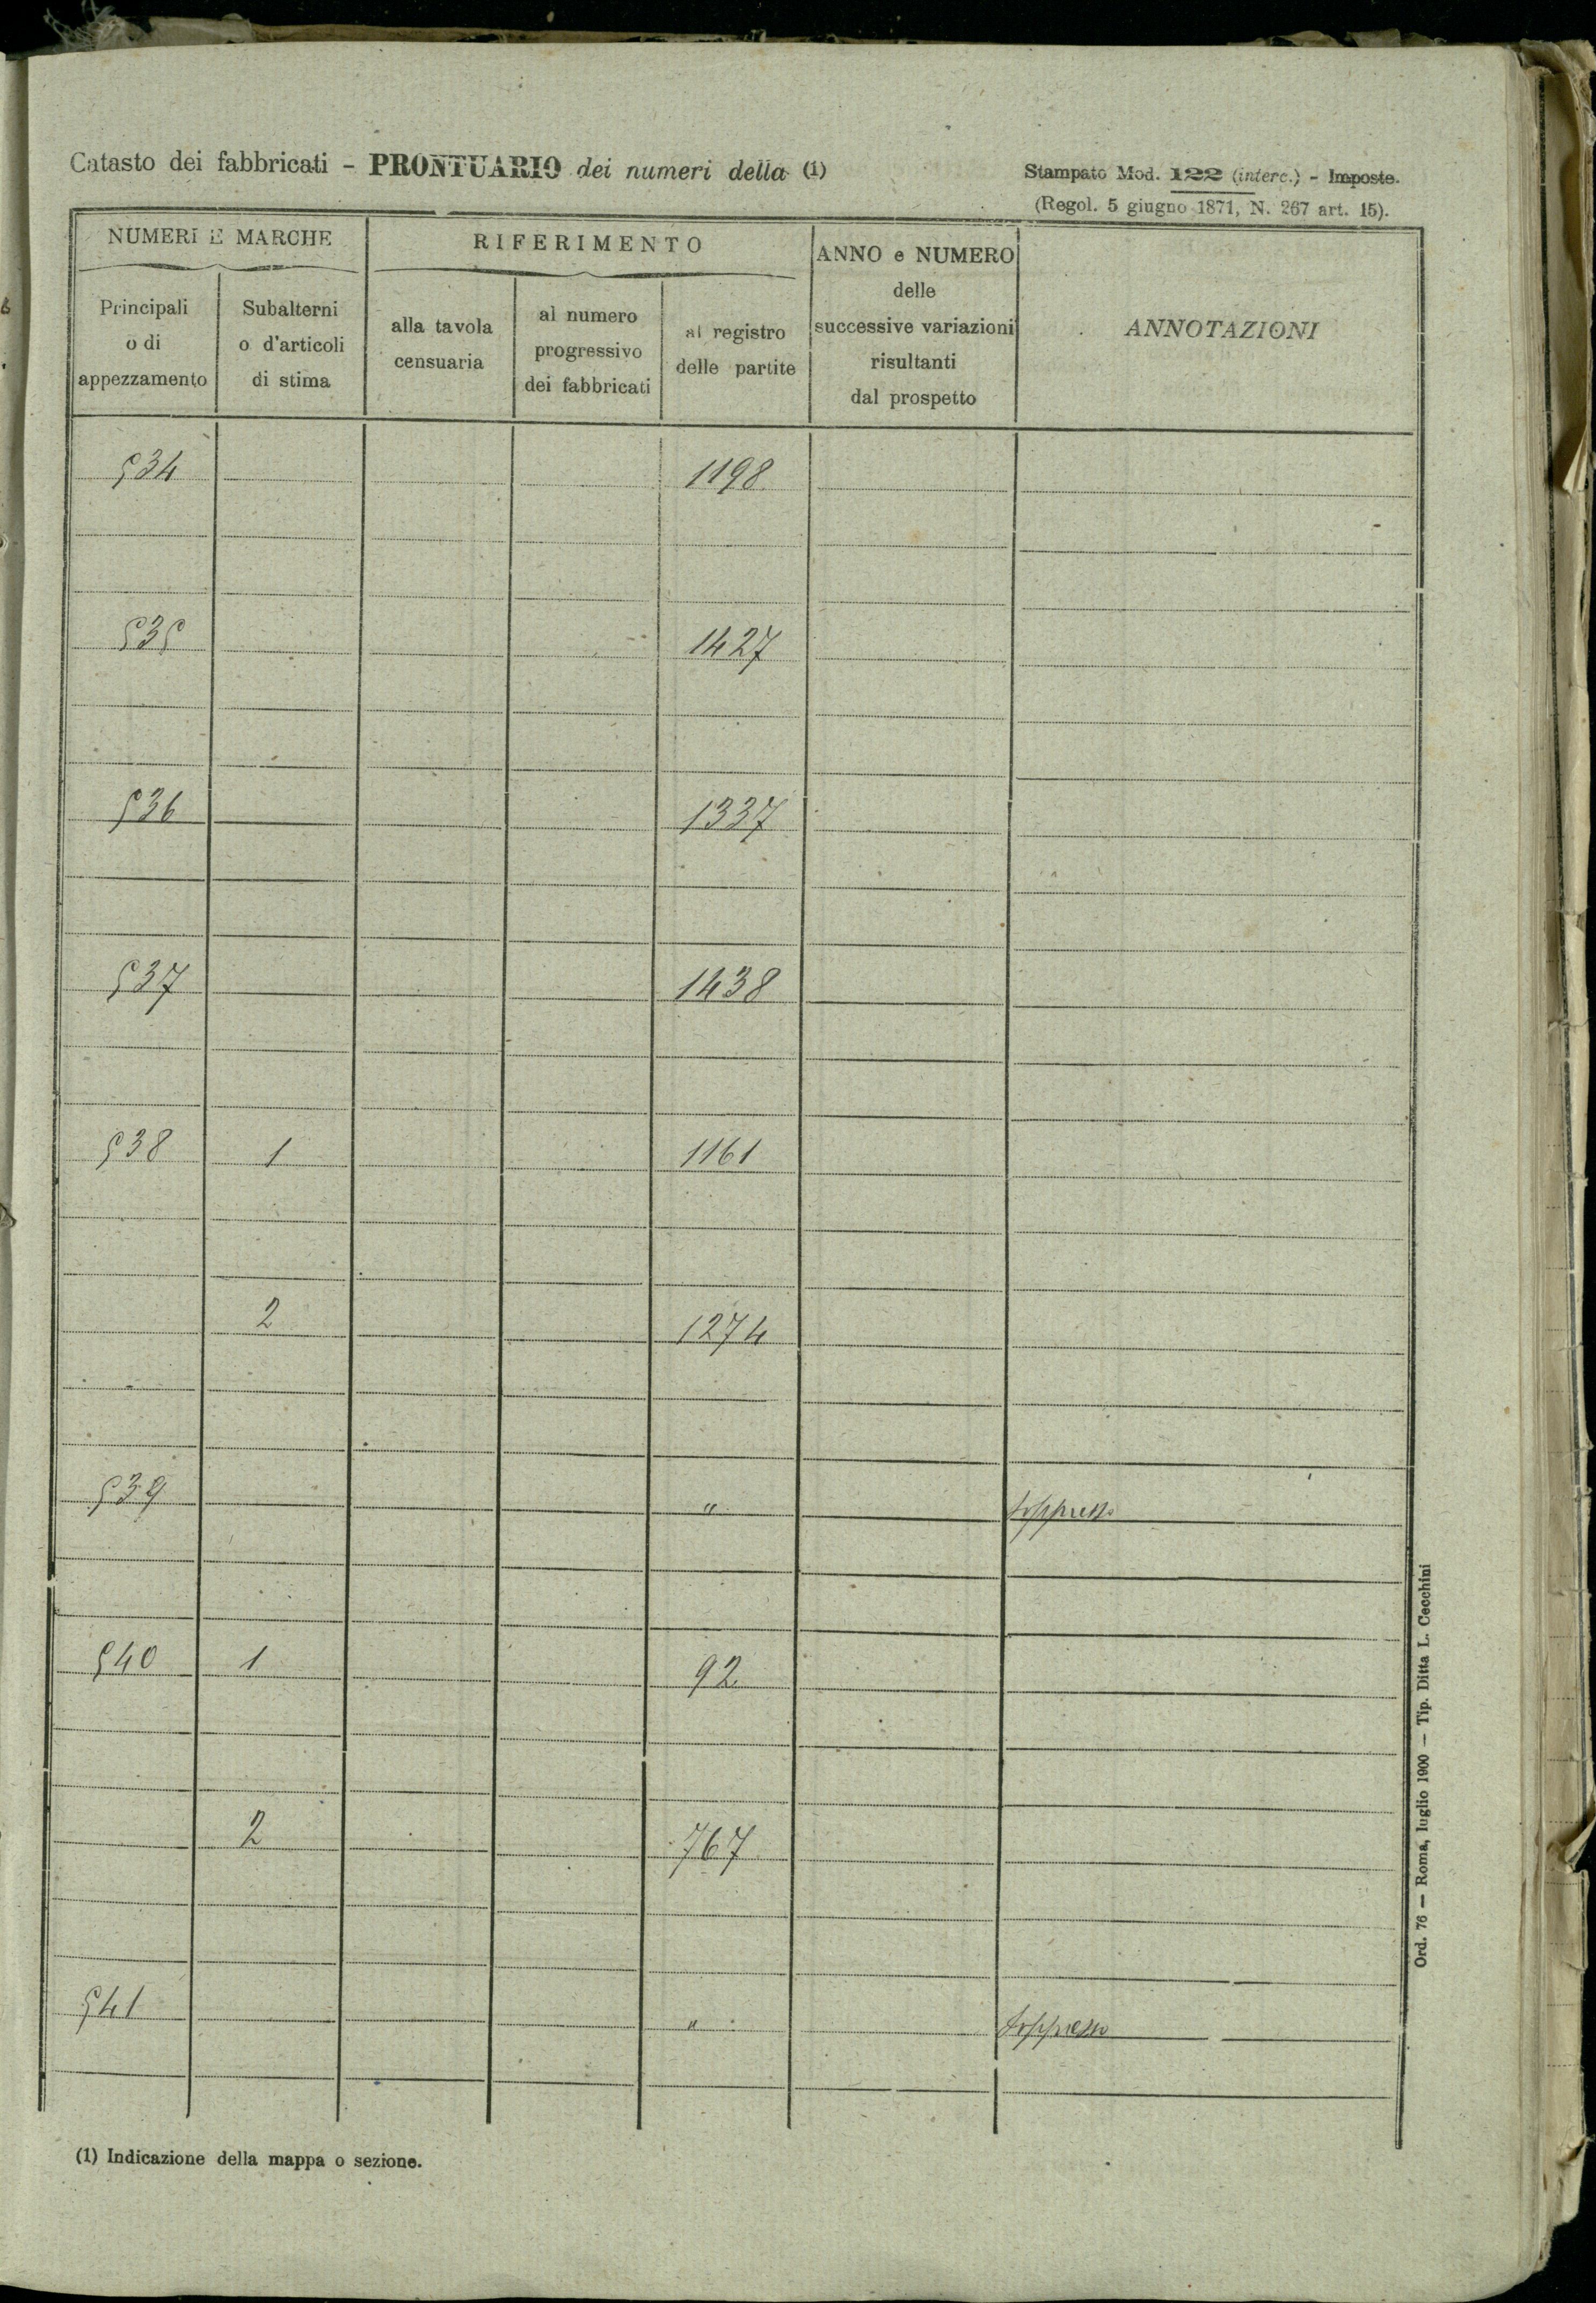 Catasto dei fabbricati - PRONTUARIO dei numeri della (1)
Stampato Mod. 122 (interc.) - Imposte.
(Regol. 5 giugno 1871, N. 267 art. 15).
NUMERI E MARCHE
RIFERIMENTO
ANNO e NUMERO
delle
successive variazioni
risultanti
dal prospetto
ANNOTAZIONI
Principali
o di
appezzamento
Subalterni
o d'articoli
di stima
alla tavola
censuaria
al numero
progressivo
dei fabbricati
al registro
delle partite
534 1198
535 1427
536 1337
537 1438
538 1 1161
2 1274
539 " soppresso
540 1 92
2 767
541 " soppresso
(1) Indicazione della mappa o sezione.
Ord. 76 — Roma, luglio 1900 — Tip. Ditta L. Cecchini